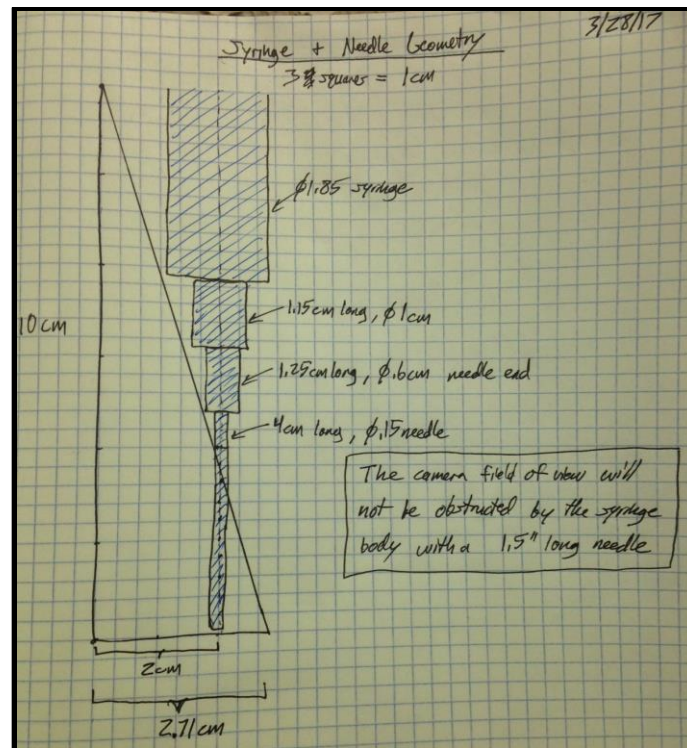 3/28/17
Syringe + Needle Geometry
3 squares = 1cm
ϕ1.85 syringe
10cm
1.15cm long, ϕ1cm
1.25cm long, ϕ.6cm needle end
4cm long, ϕ.15 needle
The camera field of view will
not be obstructed by the syringe
body with a 1.5" long needle
2cm
2.71cm